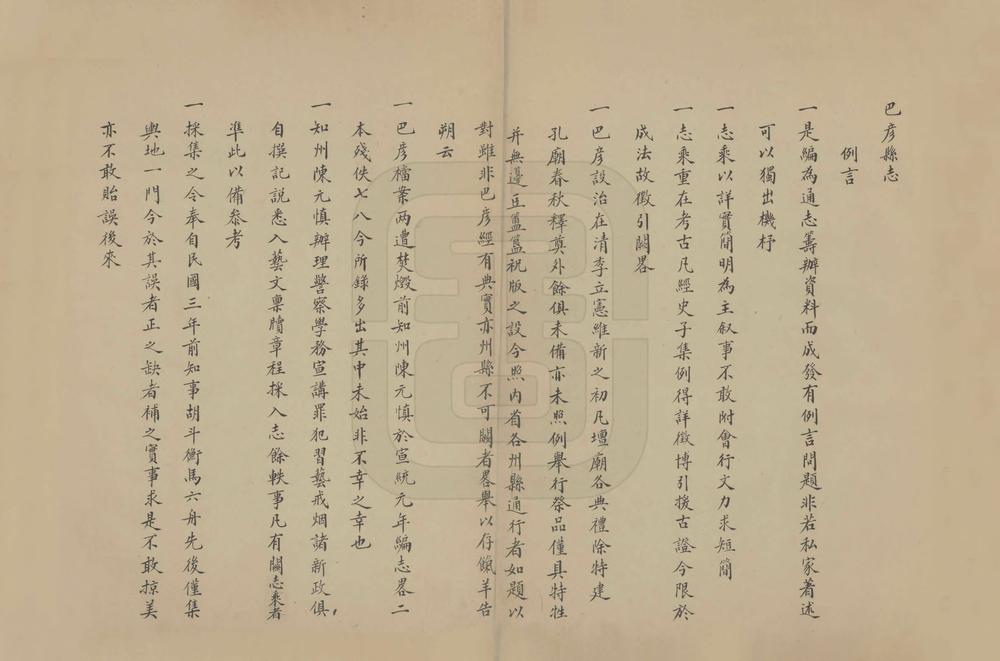 巴彦縣志
例言
一是編為通志籌辦資料而成發有例言問題非若私家著述
可以獨出機杼
一志乘以詳實簡明為主叙事不敢附會行文力求短簡
一志乘重在考古凡經史子集例得詳徵博引援古證今限於
成法故徵引闕畧
一巴彦設治在清季立憲維新之初凡壇廟各典禮除特建
孔廟春秋釋奠外餘俱未備亦未照例舉行祭品僅具特牲
并無籩豆簠簋祝版之設今照内省各州縣通行者如題以
對雖非巴彦經有典實亦州縣不可闕者畧舉以存餼羊告
朔云
一巴彦檔案两遭焚燬前知州陳元慎於宣統元年編志畧二
本殘佚七八今所錄多出其中未始非不幸之幸也
一知州陳元慎辦理警察學務宣講罪犯習藝戒烟諸新政俱
自撰記説悉入藝文禀牘章程採入志餘軼事凡有關志乘者
準此以備叅考
一採集之令奉自民國三年前知事胡斗衡馬六舟先後僅集
輿地一門今於其誤者正之缺者補之實事求是不敢掠美
亦不敢貽誤後來